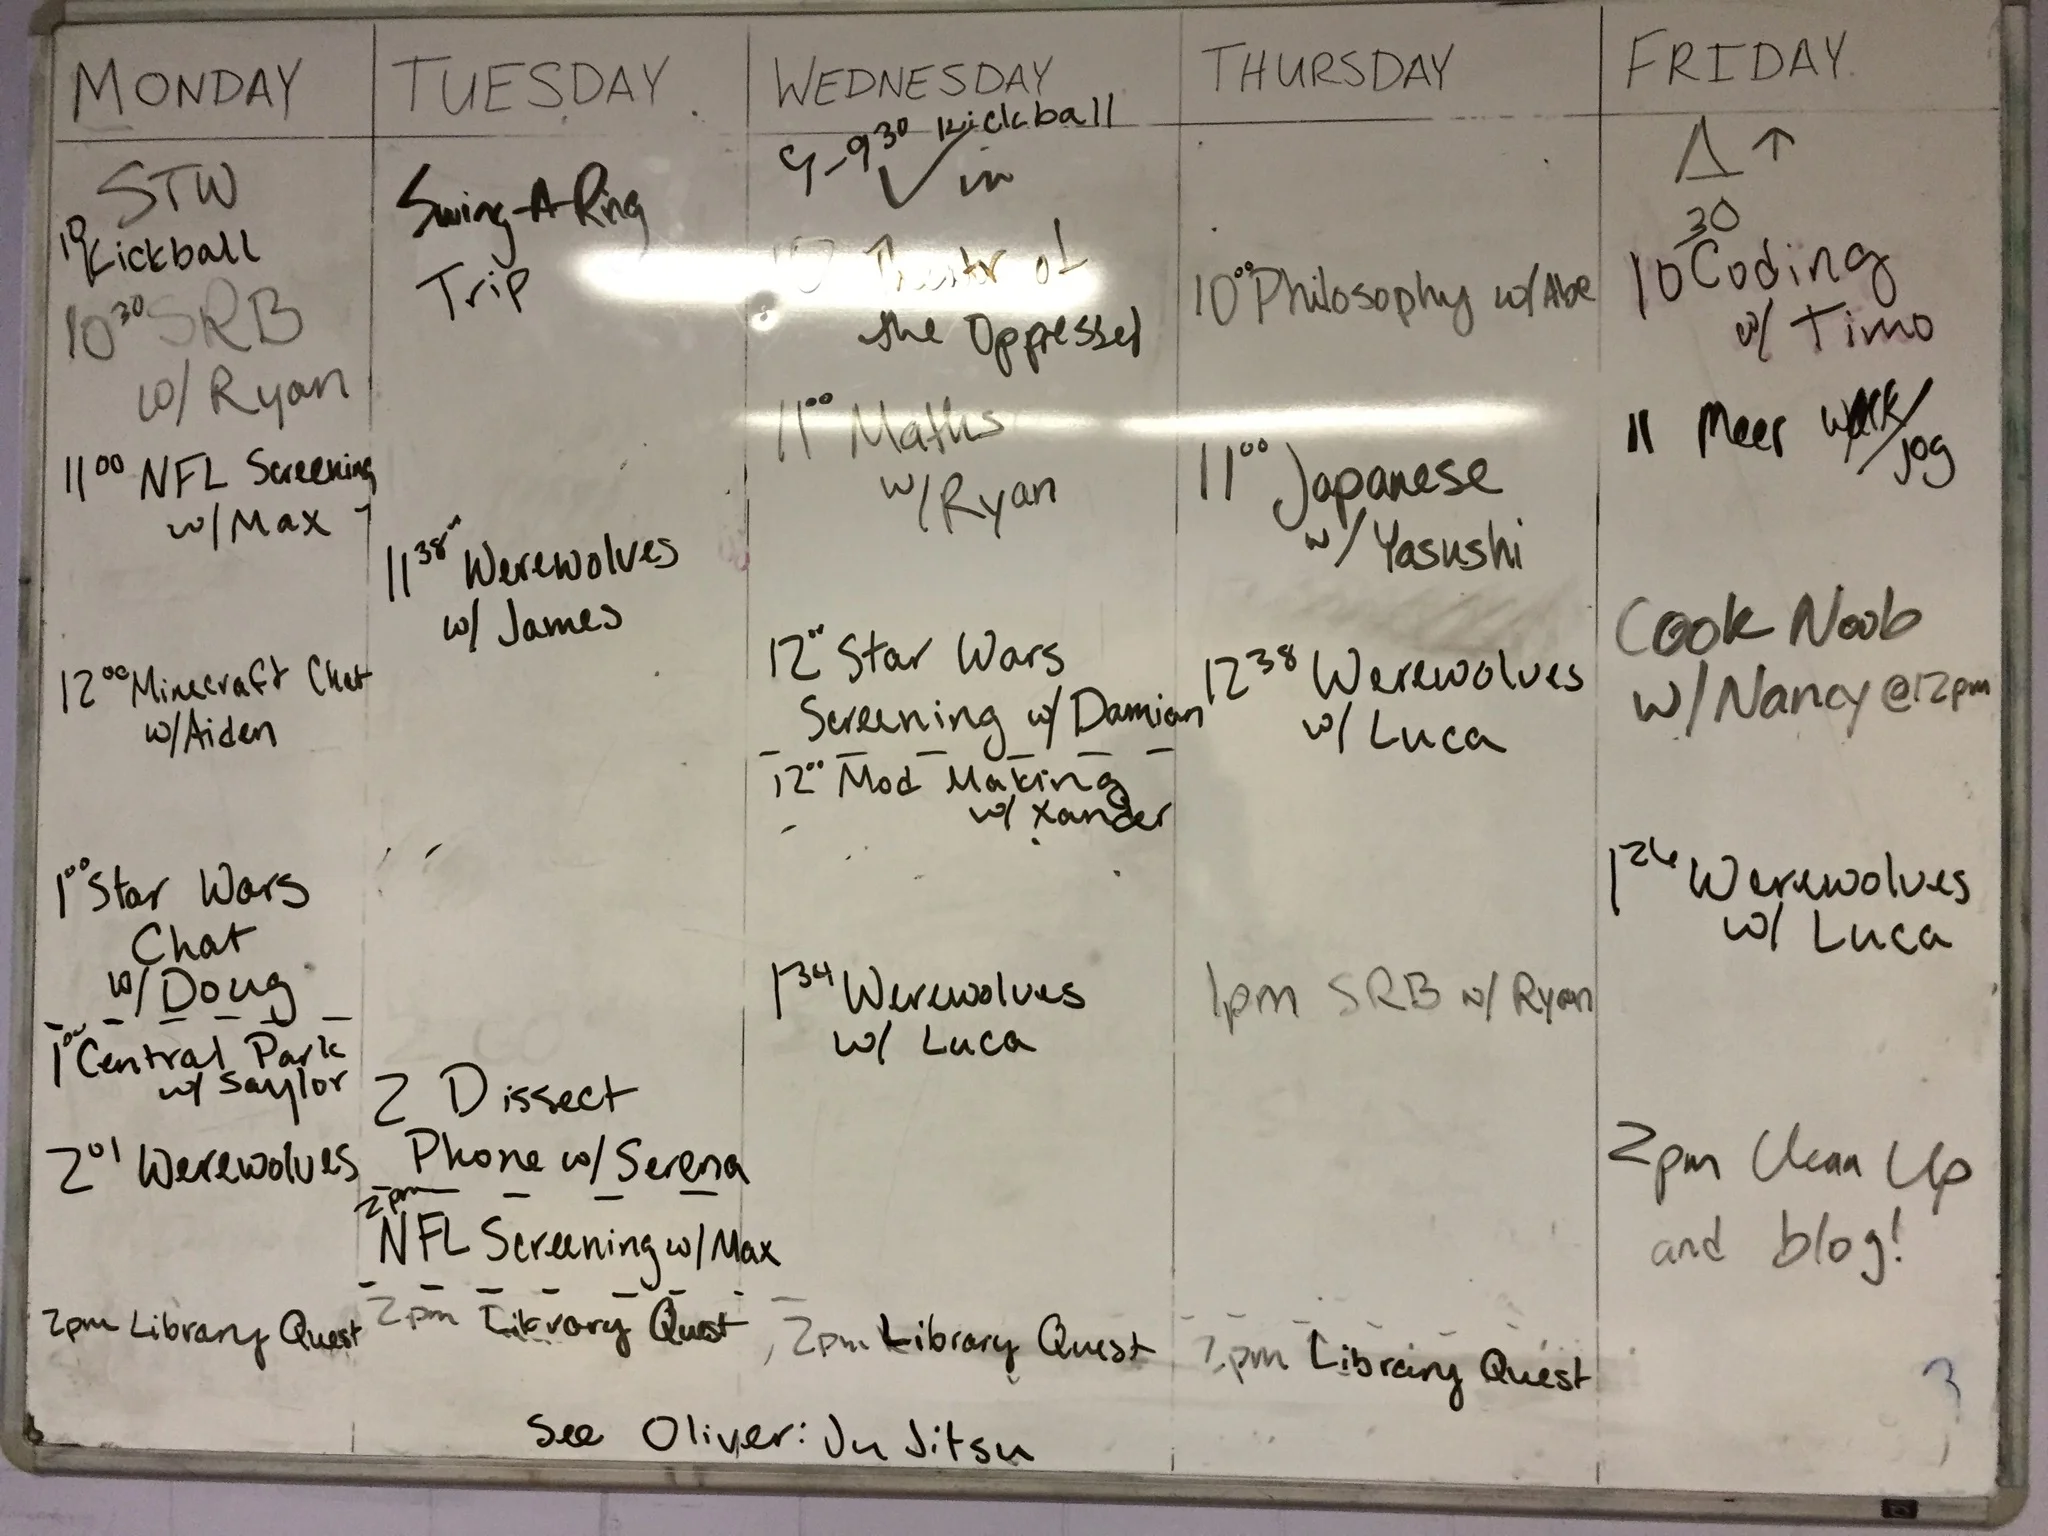 MONDAY
STW
10 Kickball
10 30 SRB
w/ Ryan
11 00 NFL Screening
w/ Max
12 00 Minecraft Chat
w/ Aiden
1 00 Star Wars
Chat
w/ Doug
1 00 Central Park
w/ Saylor
2 01 Werewolves
2pm Library Quest
TUESDAY
Swing-A-Ring
Trip
11 38 Werewolves
w/ James
2 Dissect
Phone w/ Serena
2pm
NFL Screening w/ Max
2pm Library Quest
WEDNESDAY
9-9 30 Kickball
✓ in
10 Theatr of
the Oppressed
11 00 Maths
w/ Ryan
12 00 Star Wars
Screening w/ Damian
12 00 Mod Making
w/ Xander
1 34 Werewolves
w/ Luca
2pm Library Quest
THURSDAY
10 00 Philosophy w/ Abe
11 00 Japanese
w/ Yasushi
12 38 Werewolves
w/ Luca
1pm SRB w/ Ryan
2pm Library Quest
FRIDAY
Δ ↑
10 30 Coding
w/ Timo
11 Meer walk/
jog
Cook Noob
w/ Nancy @ 12pm
1 26 Werewolves
w/ Luca
2pm Clean Up
and blog!
See Oliver: Ju Jitsu